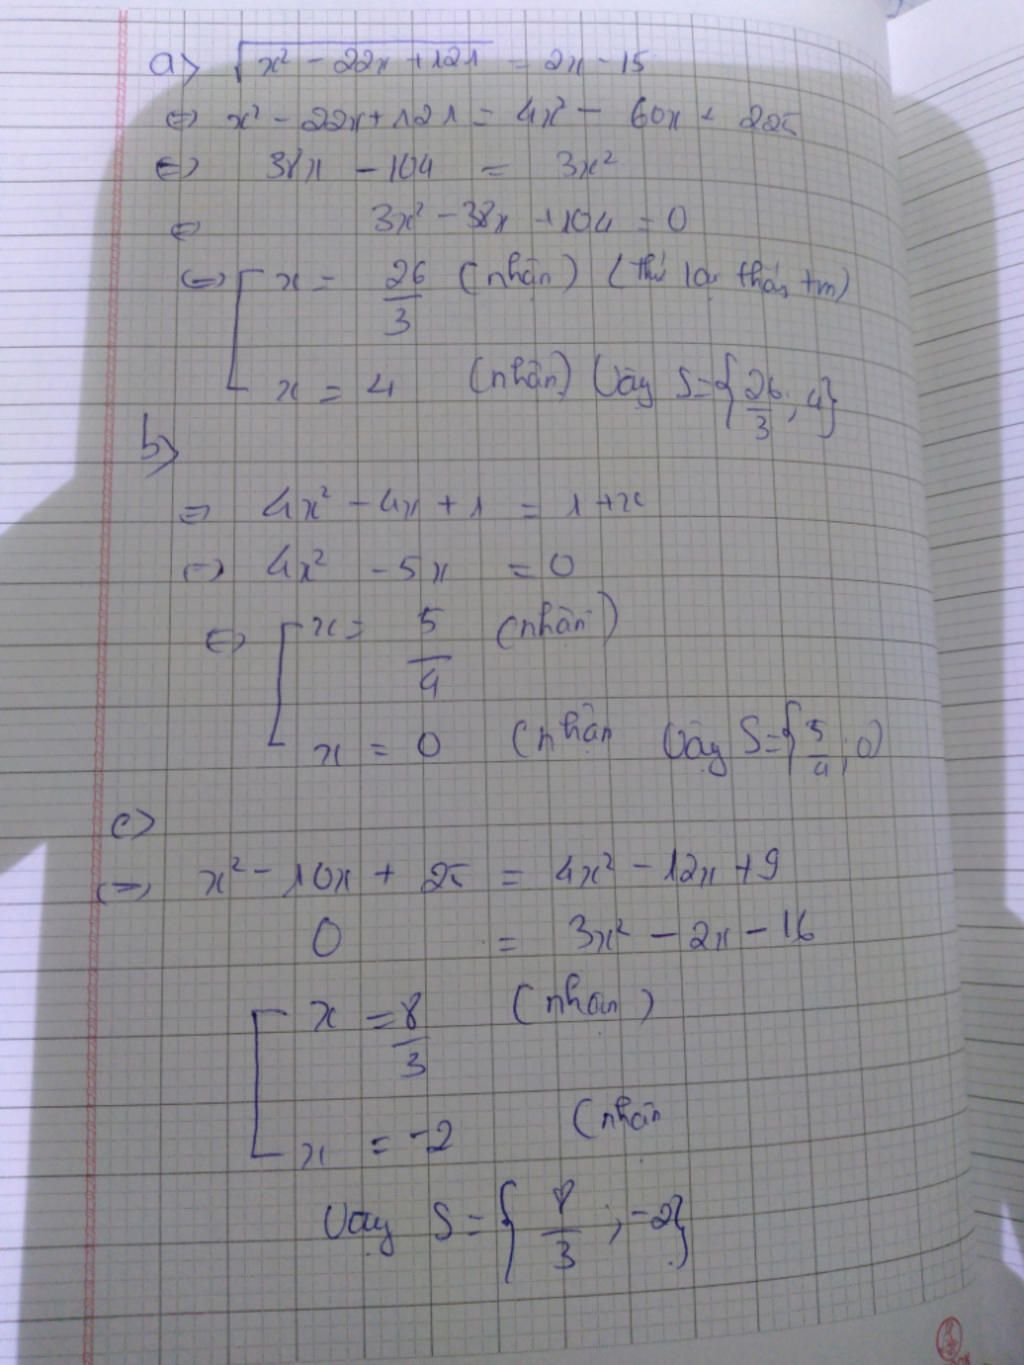 a) √(x² - 22x + 121) = 2x - 15
⇔ x² - 22x + 121 = 4x² - 60x + 225
⇔ 38x - 104 = 3x²
⇔ 3x² - 38x + 104 = 0
⇔ [ x = 26/3 (nhận) (thử lại thấy tm)
x = 4 (nhận) Vậy S = {26/3 ; 4}
b)
⇒ 4x² - 4x + 1 = 1 + x
⇔ 4x² - 5x = 0
⇔ [ x = 5/4 (nhận)
x = 0 (nhận Vậy S = {5/4 ; 0}
c)
⇔ x² - 10x + 25 = 4x² - 12x + 9
0 = 3x² - 2x - 16
[ x = 8/3 (nhận)
x = -2 (nhận
Vậy S = {8/3 ; -2}